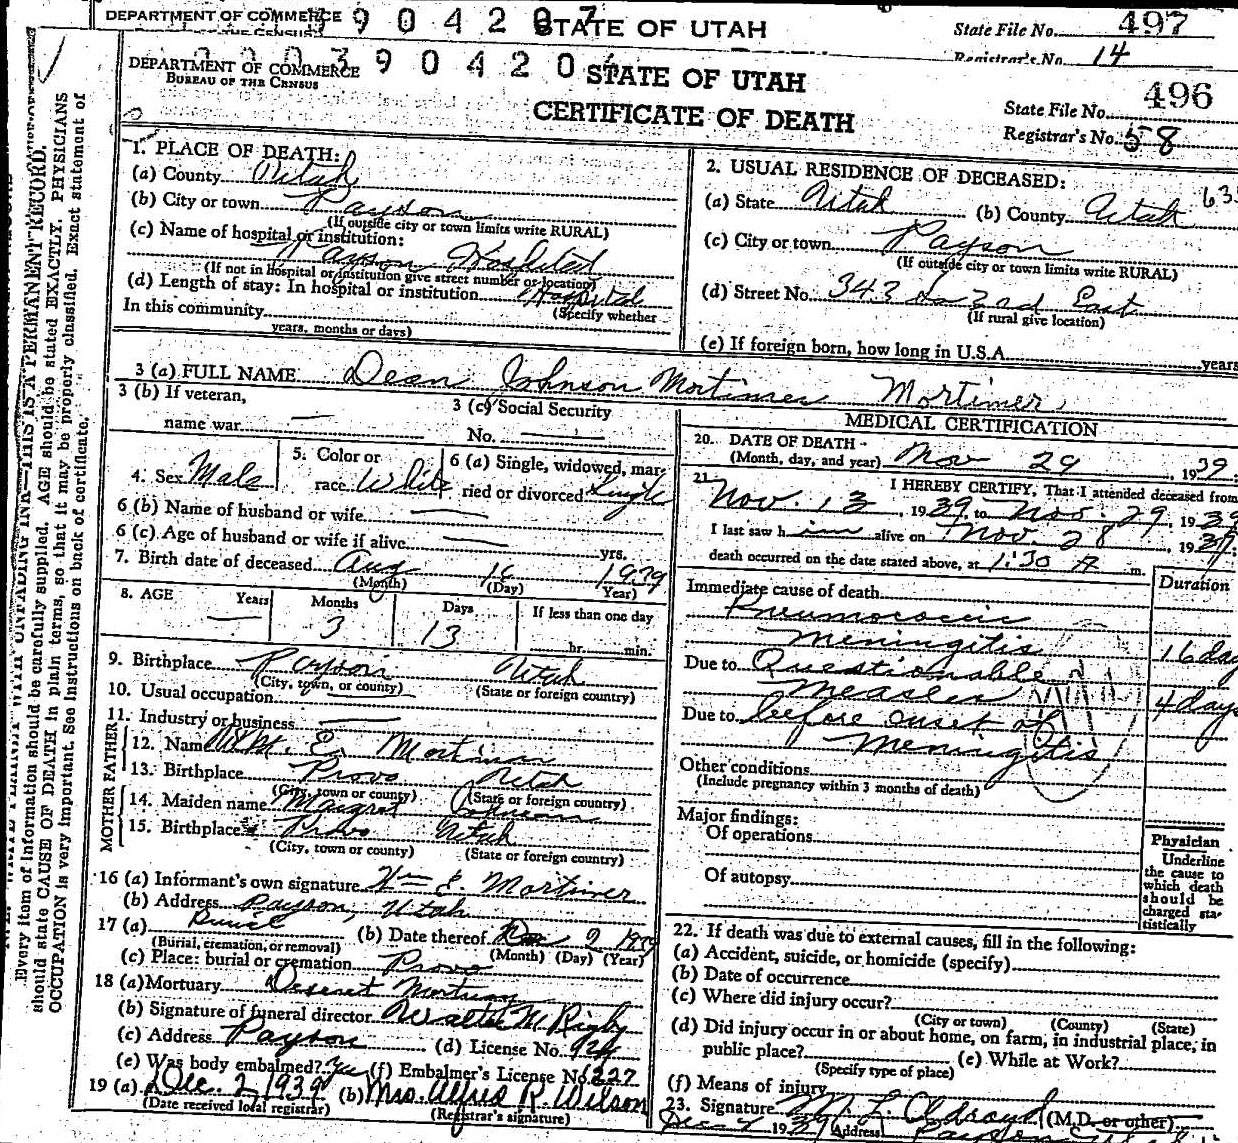 DEPARTMENT OF COMMERCE 3904207 STATE OF UTAH State File No. 497
Registrar's No. 14
DEPARTMENT OF COMMERCE 390420 STATE OF UTAH
BUREAU OF THE CENSUS
CERTIFICATE OF DEATH
State File No. 496
Registrar's No. 58
Every item of information should be carefully supplied. AGE should be stated EXACTLY. PHYSICIANS
should state CAUSE OF DEATH in plain terms, so that it may be properly classified. Exact statement of
OCCUPATION is very important. See instructions on back of certificate.
1. PLACE OF DEATH:
(a) County Utah
(b) City or town Payson
(If outside city or town limits write RURAL)
(c) Name of hospital or institution:
Payson Hospital
(If not in hospital or institution give street number or location)
(d) Length of stay: In hospital or institution Hospital
(Specify whether
In this community
years, months or days)
2. USUAL RESIDENCE OF DECEASED:
(a) State Utah (b) County Utah
(c) City or town Payson
(If outside city or town limits write RURAL)
(d) Street No. 343 So 3rd East
(If rural give location)
(e) If foreign born, how long in U.S.A. years
3 (a) FULL NAME Dean Johnson Mortimer Mortimer
3 (b) If veteran,
name war —
3 (c) Social Security
No. —
4. Sex Male
5. Color or
race White
6 (a) Single, widowed, mar-
ried or divorced Single
6 (b) Name of husband or wife —
6 (c) Age of husband or wife if alive — yrs.
7. Birth date of deceased Aug 16 1939
(Month) (Day) Year)
8. AGE Years Months Days If less than one day
— 3 13 hr. min.
9. Birthplace Payson Utah
(City, town, or county) (State or foreign country)
10. Usual occupation
11. Industry or business —
FATHER
12. Name Wm. E. Mortimer
13. Birthplace Provo Utah
(City, town or county) (State or foreign country)
MOTHER
14. Maiden name Margret Johnson
15. Birthplace Provo Utah
(City, town or county) (State or foreign country)
16 (a) Informant's own signature Wm E. Mortimer
(b) Address Payson, Utah
17 (a) Burial (b) Date thereof Dec 2 1939
(Burial, cremation, or removal) (Month) (Day) (Year)
(c) Place: burial or cremation Provo
18 (a) Mortuary Deseret Mortuary
(b) Signature of funeral director Walter M Rigby
(c) Address Payson (d) License No. 424
(e) Was body embalmed? Yes (f) Embalmer's License No. 227
19 (a) Dec. 2, 1939 (b) Mrs. Alfred R. Wilson
(Date received local registrar) (Registrar's signature)
MEDICAL CERTIFICATION
20. DATE OF DEATH -
(Month, day, and year) Nov 29, 1939
21. I HEREBY CERTIFY, That I attended deceased from
Nov. 13, 1939 to Nov. 29, 1939
I last saw him alive on Nov. 28, 1939;
death occurred on the date stated above, at 1:30 A m.
Immediate cause of death Duration
Pneumococcic
Meningitis 16 day
Due to Questionable
Measles 4 days
Due to before onset of
Meningitis
Other conditions
(Include pregnancy within 3 months of death)
Major findings:
Of operations
Of autopsy
Physician
Underline
the cause to
which death
should be
charged sta-
tistically
22. If death was due to external causes, fill in the following:
(a) Accident, suicide, or homicide (specify)
(b) Date of occurrence
(c) Where did injury occur?
(City or town) (County) (State)
(d) Did injury occur in or about home, on farm, in industrial place, in
public place? (e) While at Work?
(Specify type of place)
(f) Means of injury
23. Signature M. L. Oldroyd (M.D. or other)
Dec 7 1939 Address Payson